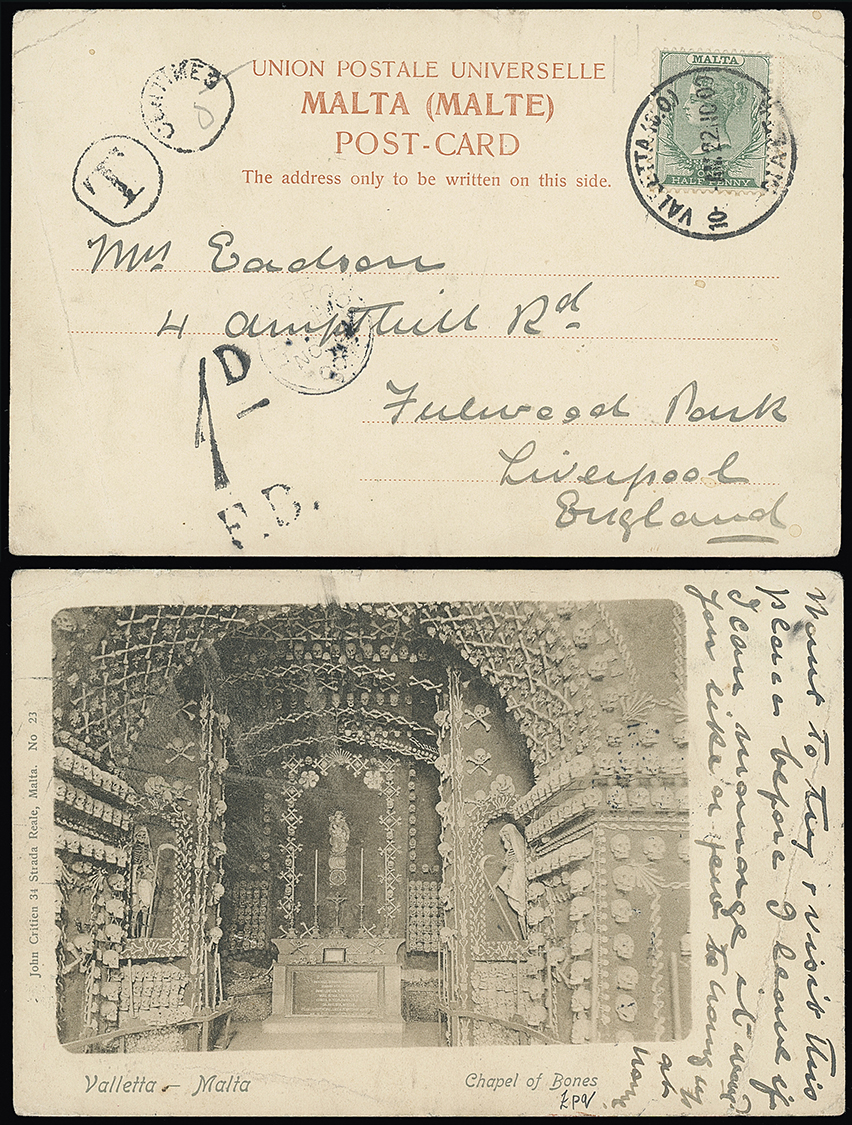 UNION POSTALE UNIVERSELLE
MALTA (MALTE)
POST-CARD
The address only to be written on this side.
CENTIMES
T
MALTA
HALF PENNY
VALLETTA (G.O)
MALTA
Mrs Eadson
4 Ampthill Rd
Fulwood Park
Liverpool
England
1D
F.B.
John Critien 34 Strada Reale, Malta. No 23
Valletta - Malta
Chapel of Bones
Want to try & visit this
place before I leave if
I can manage it
you like a
to hang up
at
home